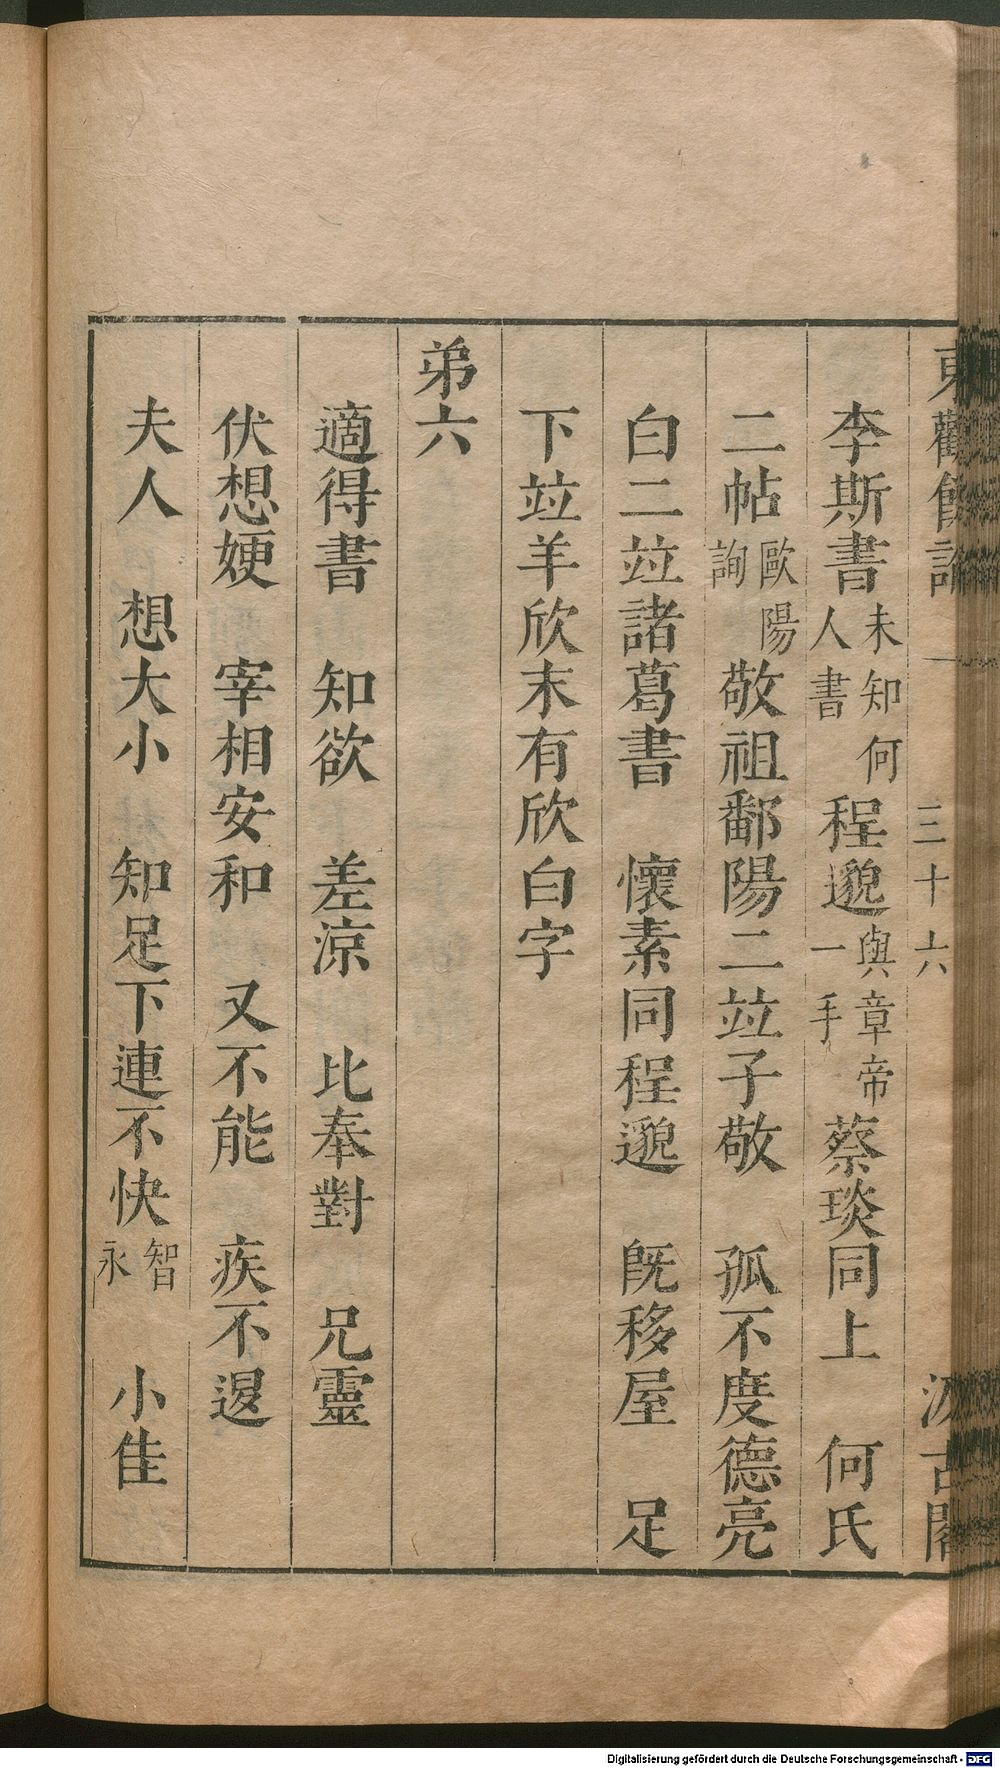 東觀餘論 三十六 汲古閣
李斯書未知何人書 程邈與章帝一手 蔡琰同上 何氏
二帖歐陽詢 敬祖鄱陽二竝子敬 孤不度德亮
白二竝諸葛書 懷素同程邈 旣移屋 足
下竝羊欣末有欣白字
弟六
適得書 知欲 差涼 比奉對 兄靈
伏想㛹 宰相安和 又不能 疾不退
夫人 想大小 知足下連不快智永 小佳
Digitalisierung gefördert durch die Deutsche Forschungsgemeinschaft - DFG